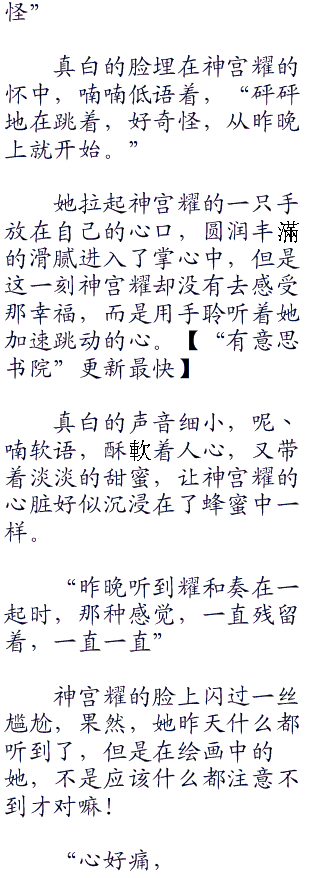 怪”
真白的脸埋在神宫耀的
怀中，喃喃低语着，“砰砰
地在跳着，好奇怪，从昨晚
上就开始。”
她拉起神宫耀的一只手
放在自己的心口，圆润丰滿
的滑腻进入了掌心中，但是
这一刻神宫耀却没有去感受
那幸福，而是用手聆听着她
加速跳动的心。【“有意思
书院”更新最快】
真白的声音细小，呢、
喃软语，酥軟着人心，又带
着淡淡的甜蜜，让神宫耀的
心脏好似沉浸在了蜂蜜中一
样。
“昨晚听到耀和奏在一
起时，那种感觉，一直残留
着，一直一直”
神宫耀的脸上闪过一丝
尴尬，果然，她昨天什么都
听到了，但是在绘画中的
她，不是应该什么都注意不
到才对嘛！
“心好痛，